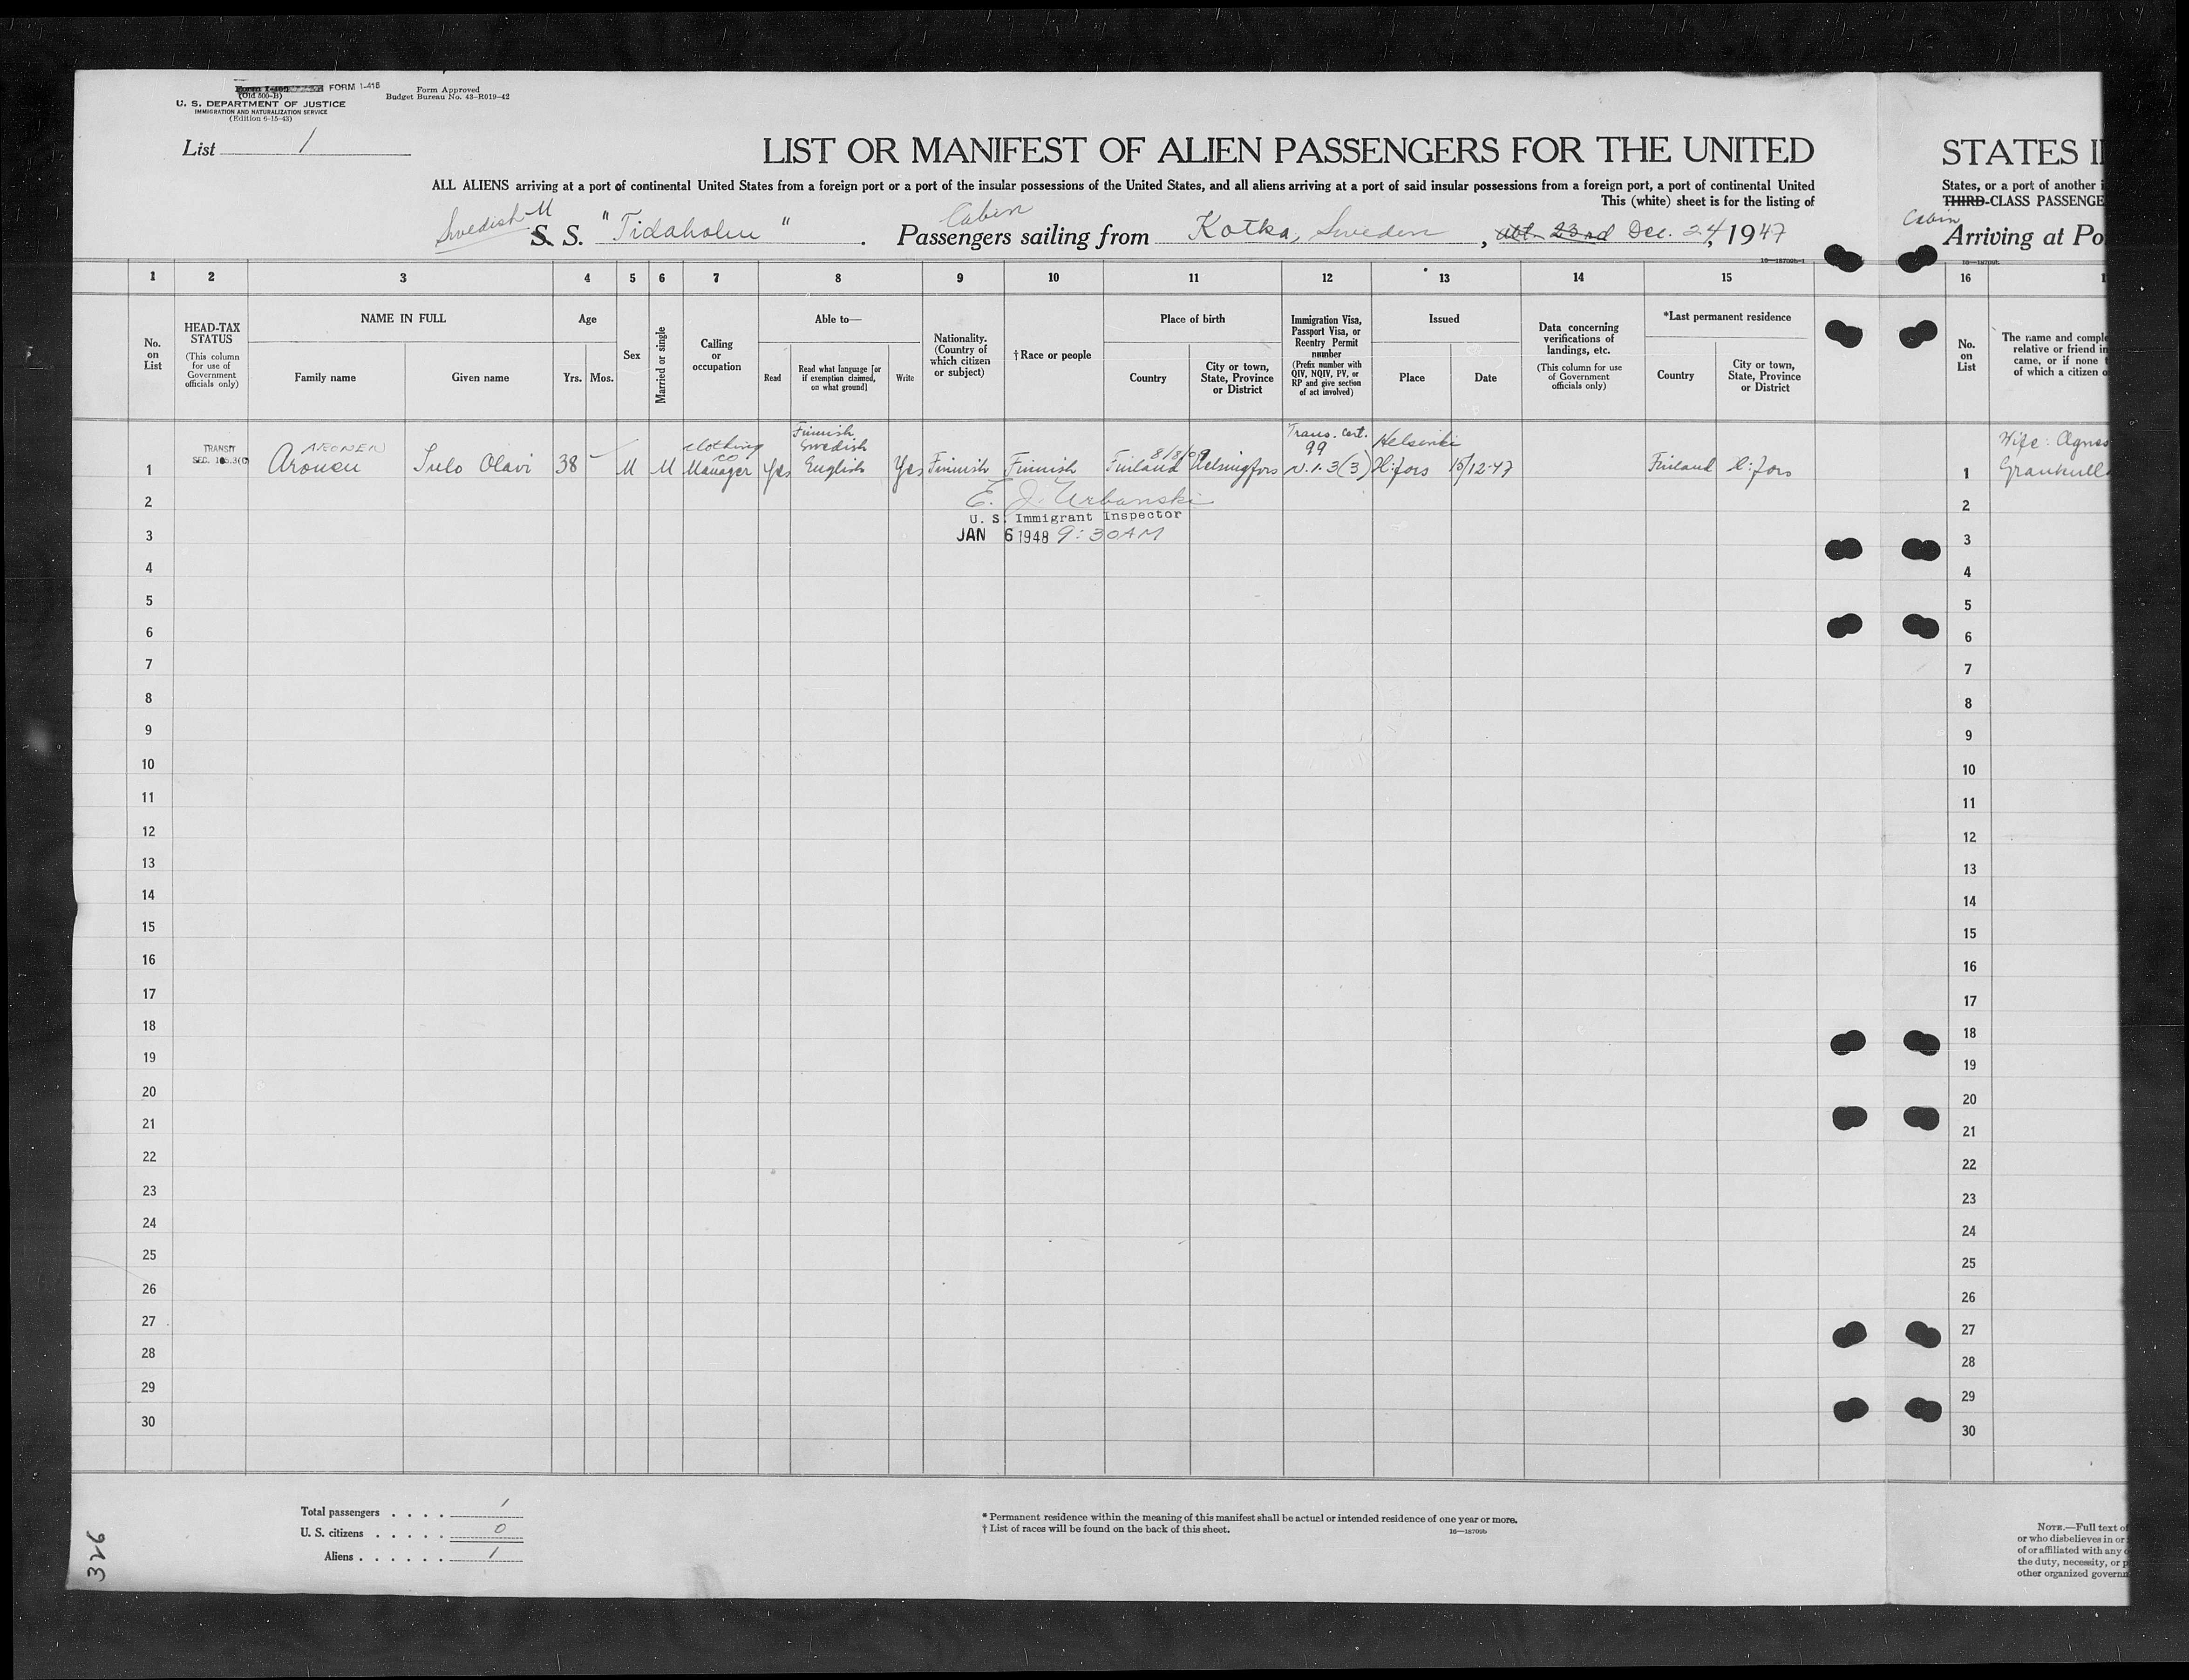 Form I-466 FORM I-415
(Old 500-B)
U. S. DEPARTMENT OF JUSTICE
IMMIGRATION AND NATURALIZATION SERVICE
(Edition 6-15-43)
Form Approved
Budget Bureau No. 43-R019-42
List 1
LIST OR MANIFEST OF ALIEN PASSENGERS FOR THE UNITED
ALL ALIENS arriving at a port of continental United States from a foreign port or a port of the insular possessions of the United States, and all aliens arriving at a port of said insular possessions from a foreign port, a port of continental United
This (white) sheet is for the listing of
Swedish M
S. S. "Tidaholm". Cabin Passengers sailing from Kotka, Sweden, abt. 23rd Dec. 24, 1947
16—18709b-1
STATES I
States, or a port of another i
THIRD-CLASS PASSENGE
Cabin
Arriving at Po
16—18709b
1 2 3 4 5 6 7 8 9 10 11 12 13 14 15
16 1
No. on List
HEAD-TAX STATUS
(This column for use of Government officials only)
NAME IN FULL
Family name
Given name
Age
Yrs.
Mos.
Sex
Married or single
Calling or occupation
Able to—
Read
Read what language [or if exemption claimed, on what ground]
Write
Nationality. (Country of which citizen or subject)
†Race or people
Place of birth
Country
City or town, State, Province or District
Immigration Visa, Passport Visa, or Reentry Permit number
(Prefix number with QIV, NQIV, PV, or RP and give section of act involved)
Issued
Place
Date
Data concerning verifications of landings, etc.
(This column for use of Government officials only)
*Last permanent residence
Country
City or town, State, Province or District
No. on List
The name and comple
relative or friend in
came, or if none t
of which a citizen o
TRANSIT
SEC. 105.3(C)
1
ARONEN
Aronen
Sulo Olavi
38
M
M
clothing
co
Manager
Yes
Finnish
Swedish
English
Yes
Finnish
Finnish
8/8/09
Finland
Helsingfors
Trans. cert.
99
V.1.3(3)
Helsinki
H:fors
15/12-47
Finland
H:fors
1
Wife: Agnes
Grankull
E. J. Urbanski
U. S. Immigrant Inspector
JAN 6 1948 9:30AM
2 2
3 3
4 4
5 5
6 6
7 7
8 8
9 9
10 10
11 11
12 12
13 13
14 14
15 15
16 16
17 17
18 18
19 19
20 20
21 21
22 22
23 23
24 24
25 25
26 26
27 27
28 28
29 29
30 30
Total passengers . . . . 1
U. S. citizens . . . . . 0
Aliens . . . . . . 1
* Permanent residence within the meaning of this manifest shall be actual or intended residence of one year or more.
† List of races will be found on the back of this sheet.
16—18709b
NOTE.—Full text of
or who disbelieves in or
of or affiliated with any o
the duty, necessity, or p
other organized governm
326